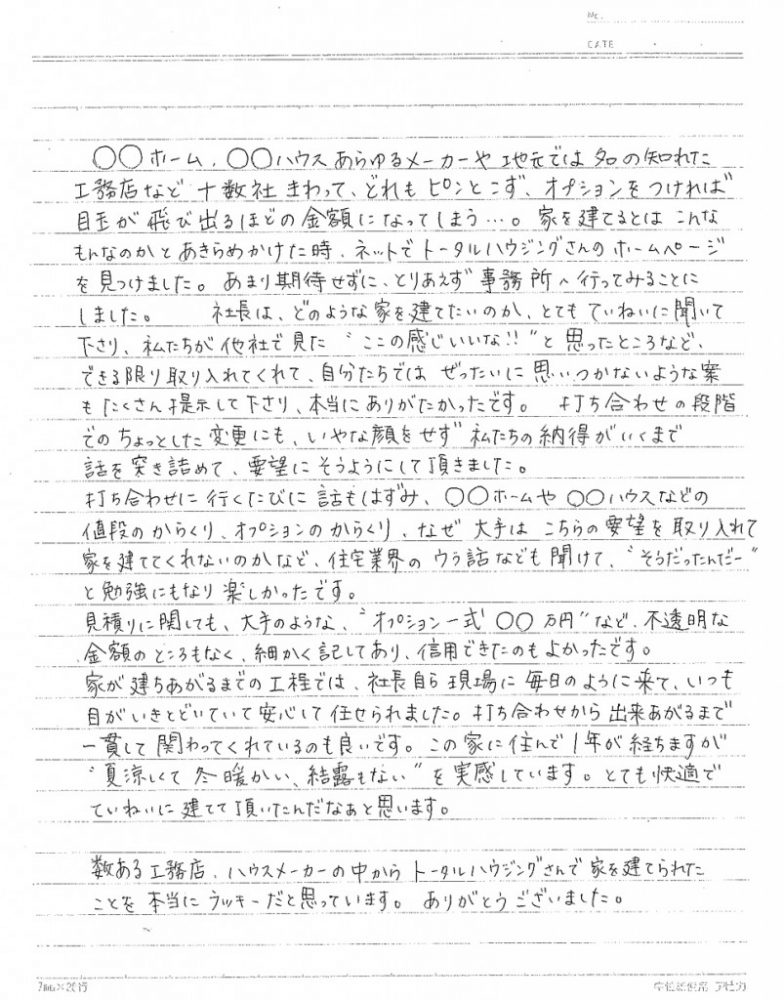 No.
DATE
○○ホーム、○○ハウスあらゆるメーカーや地元では名の知れた
工務店など十数社まわって、どれもピンとこず、オプションをつければ
目玉が飛び出るほどの金額になってしまう…。家を建てるとはこんな
もんなのかとあきらめかけた時、ネットでトータルハウジングさんのホームページ
を見つけました。あまり期待せずに、とりあえず事務所へ行ってみることに
しました。 社長は、どのような家を建てたいのか、とてもていねいに聞いて
下さり、私たちが他社で見た〝ここの感じいいな!!〟と思ったところなど、
できる限り取り入れてくれて、自分たちではぜったいに思いつかないような案
もたくさん提示して下さり、本当にありがたかったです。 打ち合わせの段階
でのちょっとした変更にも、いやな顔をせず私たちの納得がいくまで
話を突き詰めて、要望にそうようにして頂きました。
打ち合わせに行くたびに話もはずみ、○○ホームや○○ハウスなどの
値段のからくり、オプションのからくり、なぜ大手はこちらの要望を取り入れて
家を建ててくれないのかなど、住宅業界のウラ話なども聞けて、〝そうだったんだー〟
と勉強にもなり楽しかったです。
見積りに関しても、大手のような、〝オプション一式○○万円〟など、不透明な
金額のところもなく、細かく記してあり、信用できたのもよかったです。
家が建ちあがるまでの工程では、社長自ら現場に毎日のように来て、いつも
目がいきとどいていて安心して任せられました。打ち合わせから出来あがるまで
一貫して関わってくれているのも良いです。この家に住んで1年が経ちますが
〝夏涼しくて冬暖かい、結露もない〟を実感しています。とても快適で
ていねいに建てて頂いたんだなぁと思います。
数ある工務店、ハウスメーカーの中からトータルハウジングさんで家を建てられた
ことを本当にラッキーだと思っています。ありがとうございました。